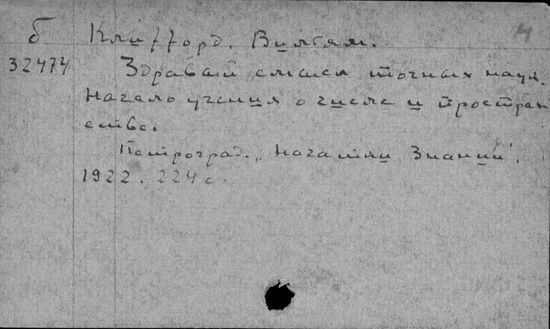 б Клиффорд. Вильям.
32474 Здравый смысл точных наук.
Начало учения о числе и простран
стве.
Петроград. „Начатки Знаний".
1922. 224 с.